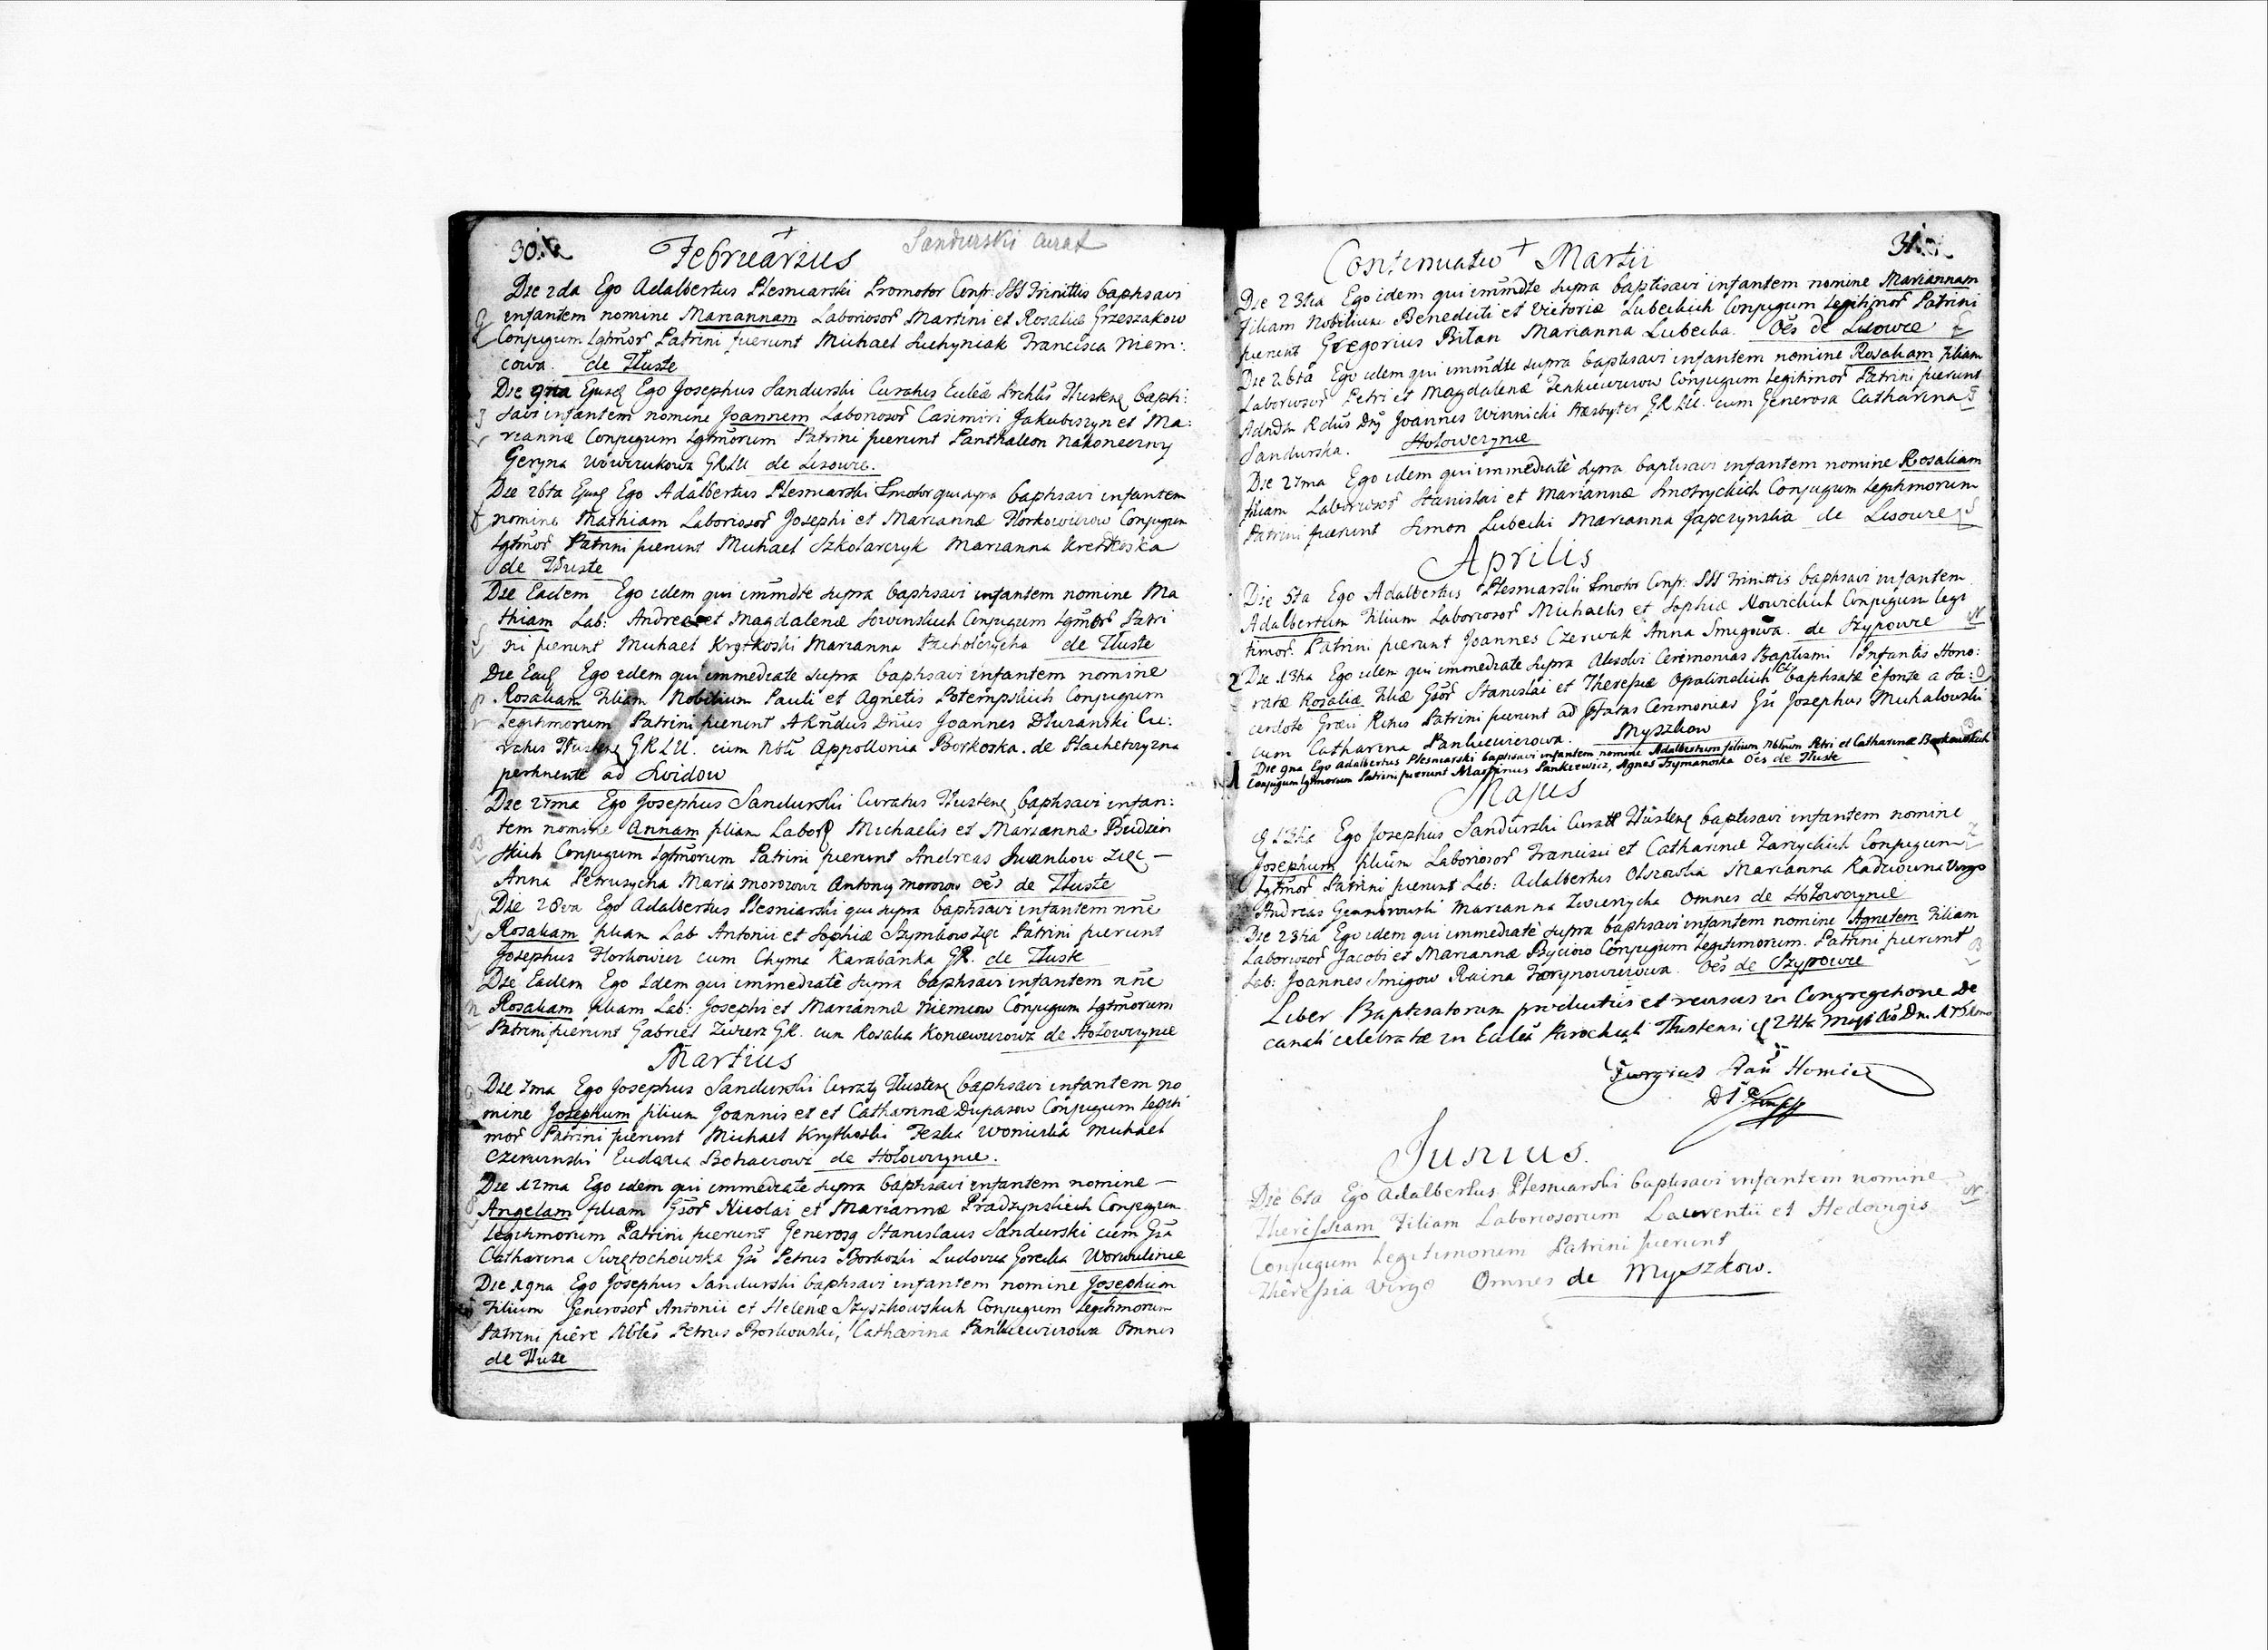 30.
Februarius
Sandurski Curat
Die 2da Ego Adalbertus Plesniarski Promotor Confr: SSS Trinittis baptisavi
infantem nomine Mariannam Laboriosor Martini et Rosaliæ Grzeszakow
Conjugum Lgtmor Patrini fuerunt Michael Suchyniak Francisca Niem:
cowa. de Tłuste
Die 9na Ejusq Ego Josephus Sandurski Curatus Eccleæ Prchlis Tłustens bapti:
savi infantem nomine Joannem Laboriosor Casimiri Jakubiszyn et Ma:
riannæ Conjugum Lgtmorum Patrini fuerunt Panthaleon Nakoneczny
Geryna Wowczukowa GRLU de Lisowce.
Die 26ta Ejusq Ego Adalbertus Plesniarski Pmotor qui supra baptisavi infantem
nomine Mathiam Laboriosor Josephi et Mariannæ Florkowiczow Conjugum
Lgtmor Patrini fuerunt Michael Szkolarczyk Marianna
de Tłuste
Die Eadem Ego idem qui immdte supra baptisavi infantem nomine Ma
thiam Lab: Andreæ et Magdalenæ Sowinskich Conjugum Lgmor Patri
ni fuerunt Michael Krętkoski Marianna Pacholczycha de Tłuste
Die Eadq Ego idem qui immediate supra baptisavi infantem nomine
Rosaliam Filiam Nobilium Pauli et Agnetis Potempskich Conjugum
Legitimorum Patrini fuerunt ARndus Dnus Joannes Dłuzanski Cu:
ratus Tłustens GRLU. cum Nbli Appollonia Borkoska. de Slachetczyzna
pertinente ad Swidow
Die 27ma Ego Josephus Sandurski Curatus Tłustens baptisavi infan:
tem nomine Annam filiam Labor Michaelis et Mariannæ Budzin
skich Conjugum Lgtmorum Patrini fuerunt Andreas Iwankow Zięc —
Anna Petruszycha Maria Morozowa Antony Morozow oes de Tłuste
Die 28va Ego Adalbertus Plesniarski qui supra baptisavi infantem nne
Rosaliam filiam Lab Antonii et Sophiæ Szymkow Zięc Patrini fuerunt
Josephus Florkowicz cum Chyma Karabanka GR. de Tłuste
Die Eadem Ego Idem qui immediate supra baptisavi infantem nne
Rosaliam filiam Lab: Josephi et Mariannæ Niemcow Conjugum Lgtmorum
Patrini fuerunt Gabriel Zwierz GR. cum Rosalia Koniewiczowa de Hołowczynce
Martius
Die 7ma Ego Josephus Sandurski Curatq Tłustens baptisavi infantem no
mine Josephum filium Joannis et et Catharinæ Dupasow Conjugum Legiti
mor Patrini fuerunt Michael Krytkoski Teska Woniuska Michael
Czerwinski Eudocia Bohaczowa de Hołowczynce.
Die 12ma Ego idem qui immediate supra baptisavi infantem nomine —
Angelam filiam Gsor Nicolai et Mariannæ Prądzynskich Conjugum
Legitimorum Patrini fuerunt Generosq Stanislaus Sandurski cum Gsa
Catharina Swiętochowska Gsi Petrus Borkoski Ludovica Gorecka Worwulince
Die 19na Ego Josephus Sandurski baptisavi infantem nomine Josephum
Filium Generosor Antonii et Helenæ Szyszkowskich Conjugum Legitimorum
Patrini fuere Nbles Petrus Borkowski, Catharina Pankiewiczowa Omnes
de Tłuste
31.
Continuatio Martii
Die 23tia Ego idem qui immdte supra baptisavi infantem nomine Mariannam
Filiam Nobilium Benedicti et Victoriæ Lubeckich Conjugum Legitimor Patrini
fuerunt Gregorius Bilan Marianna Lubecka. Oes de Lisowce
Die 26ta Ego idem qui immdte supra baptisavi infantem nomine Rosaliam Filiam
Laboriosor Petri et Magdalenæ Jenkiewiczow Conjugum Legitimor Patrini fuerunt
Adndus Rdus Dnq Joannes Winnicki Præsbyter GRLU. cum Generosa Catharina
Sandurska. Hołowczynce
Die 27ma Ego idem qui immediate supra baptisavi infantem nomine Rosaliam
filiam Laboriosor Stanislai et Mariannæ Smotryckich Conjugum Legitimorum
Patrini fuerunt Simon Lubecki Marianna Japczynska de Lisowce
Aprilis
Die 5ta Ego Adalbertus Plesniarski Pmotor Confr: SSS Trinittis baptisavi infantem
Adalbertum Filium Laboriosor Michaelis et Sophiæ Nowickich Conjugum Legi
timor. Patrini fuerunt Joannes Czerwak Anna Smigowa. de Szypowce
2 Die 13tia Ego idem qui immediate supra Absolvi Ceremonias Baptismi Infantis Hono:
ratæ Rosaliæ Filiæ Gsor Stanislai et Theresiæ Opalinskich baptisatæ é fonte a Sa:
cerdote Græci Ritus Patrini fuerunt ad pfatas Cerimonias Gsi Josephus Michalowski
cum Catharina Pankiewiczowa. Myszkow
1 Die 9na Ego Adalbertus Plesniarski baptisavi infantem nomine Adalbertum filium Nblium Petri et Catharinæ Borkowskich
Conjugum Lgtmorum Patrini fuerunt Martinus Pankiewicz, Agnes Szymanska Oes de Tłuste
Majus
13tia Ego Josephus Sandurski Curatq Tłustens baptisavi infantem nomine
Josephum filium Laboriosor Francisci et Catharinæ Zarzyckich Conjugum
Lgtmor Patrini fuerunt Lab: Adalbertus Olszowka Marianna Radziowna Virgo
Andreas Marianna Zwierzycha Omnes de Hołowczynce
Die 23tia Ego idem qui immediate supra baptisavi infantem nomine Agnetem Filiam
Laboriosor Jacobi et Mariannæ Byciow Conjugum Legitimorum. Patrini fuerunt
Lab: Joannes Smigow Raina Oes de Szypowce
Liber Baptisatorum productus et revisus in Congregatione De
canali celebrata in Eccleâ Parochiali Tłustensi 24ta Maji
Junius.
Die 6ta Ego Adalbertus Plesniarski baptisavi infantem nomine
Theressiam Filiam Laboriosorum Laurentii et Hedovigis
Conjugum Legitimorum Patrini fuerunt
Theressia Virgo Omnes de Myszkow.